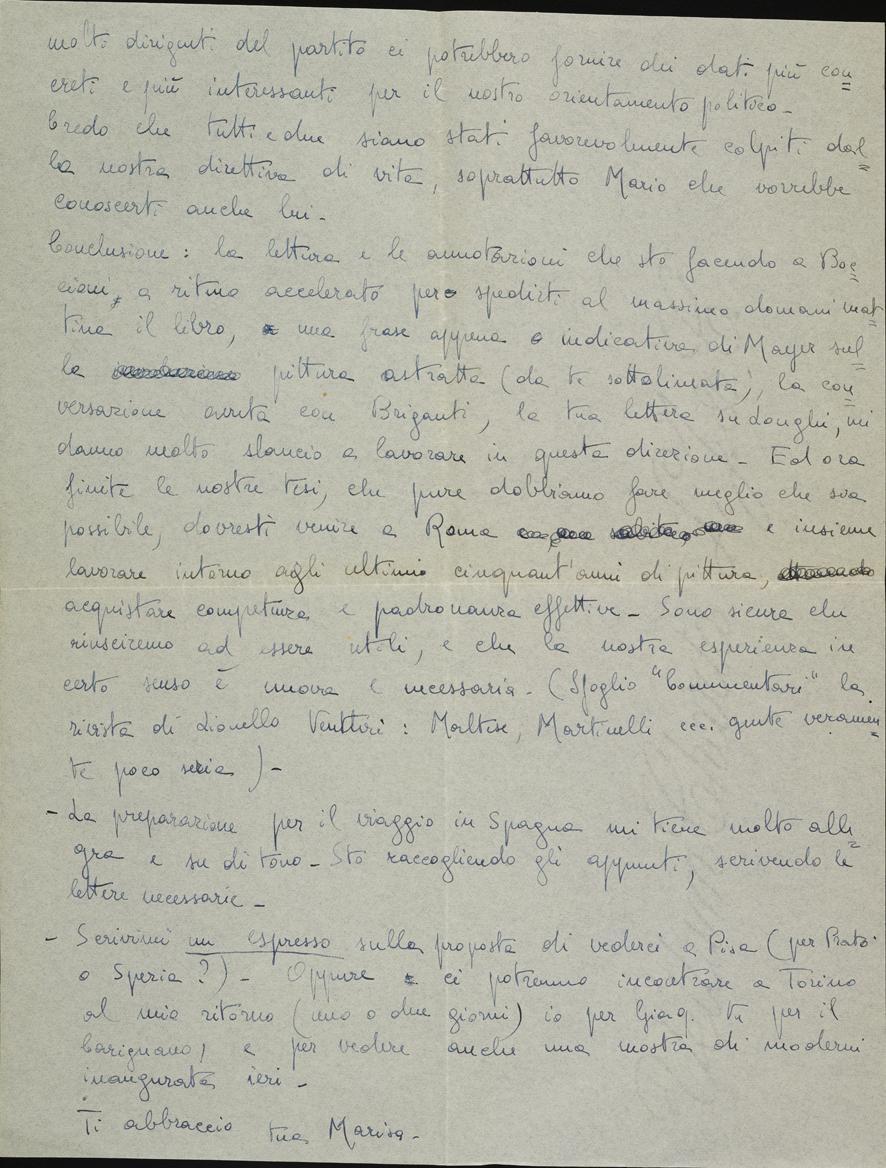 molti dirigenti del partito ci potrebbero fornire dei dati più con=
creti e più interessanti per il nostro orientamento politico_
Credo che tutti e due siano stati favorevolmente colpiti dal=
la nostra direttiva di vita, soprattutto Mario che vorrebbe
conoscerti anche lui_
Conclusione: la lettura e le annotazioni che sto facendo a Boc=
cioni, a ritmo accelerato per spedirti al massimo domani mat=
tina il libro, una frase appena indicativa di Mayer sul=
la pittura astratta (da te sottolineata), la con=
versazione avuta con Briganti, la tua lettera su Longhi, mi
danno molto slancio a lavorare in questa direzione_ Ed ora
finite le nostre tesi, che pure dobbiamo fare meglio che sia
possibile, dovresti venire a Roma e insieme
lavorare intorno agli ultimi cinquant'anni di pittura,
acquistare competenza e padronanza effettive_ Sono sicura che
riusciremo ad essere utili, e che la nostra esperienza in
certo senso è nuova e necessaria. (Sfoglio "Commentari" la
rivista di Lionello Venturi: Maltese, Martinelli ecc. gente veramen=
te poco seria)_
- La preparazione per il viaggio in Spagna mi tiene molto alle=
gra e su di tono_ Sto raccogliendo gli appunti, scrivendo le
lettere necessarie_
- Scrivimi un espresso sulla proposta di vederci a Pisa (per Prato
o Spezia?)_ Oppure ci potremo incontrare a Torino
al mio ritorno (uno o due giorni) io per Giaq. tu per il
Carignano, e per vedere anche una mostra di moderni
inaugurata ieri_
Ti abbraccio tua Marisa_